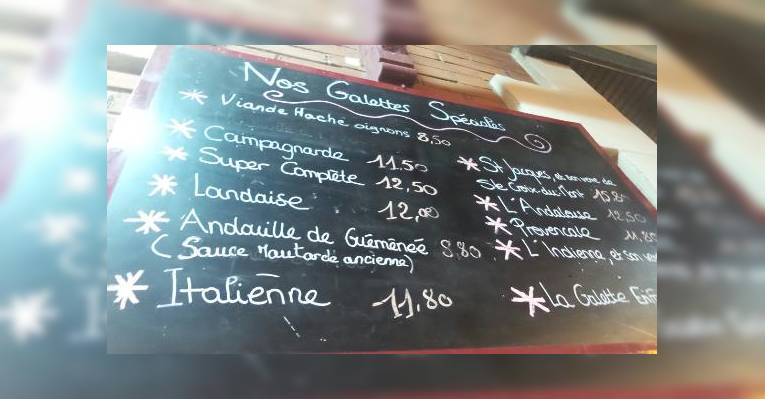 Nos Galettes Spéciales
* Viande Haché oignons 8,50
* Campagnarde 11,50
* Super Complète 12,50
* Landaise 12,00
* Andouille de Guéménée 8,80
(Sauce Moutarde ancienne)
* Italienne 11.80
* St Jacques, et son verre de
Ste Croix du Mont
* L'Andalouse 12.50
* Provençale
* L'Indienne, et son
* La Galette